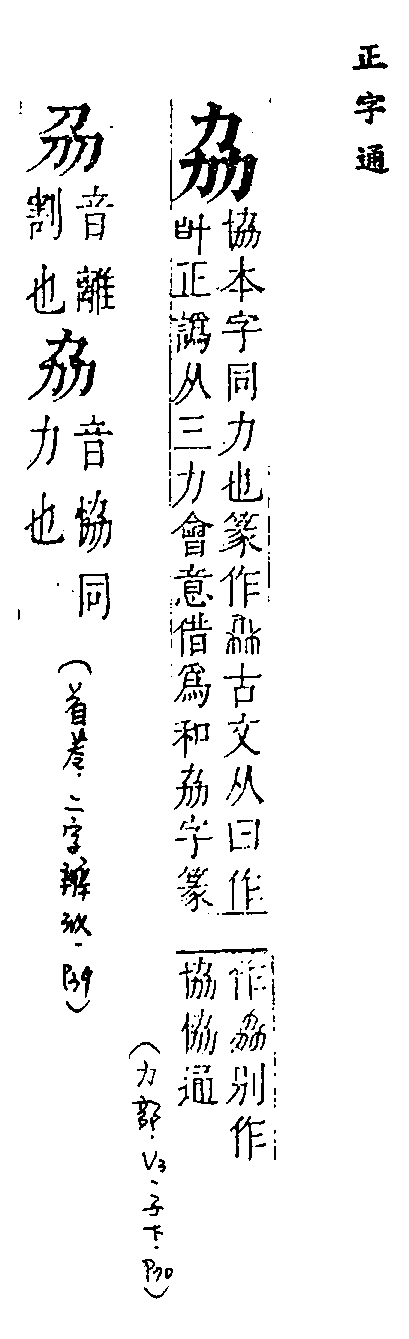 正字通
劦
協本字同力也篆作劦古文从曰作
叶正譌从三力會意借爲和劦字篆
作劦別作
協恊通
(力部.V3-子下.P30)
刕音離
割也
劦音協同
力也
(首卷.二字辨似-P39)